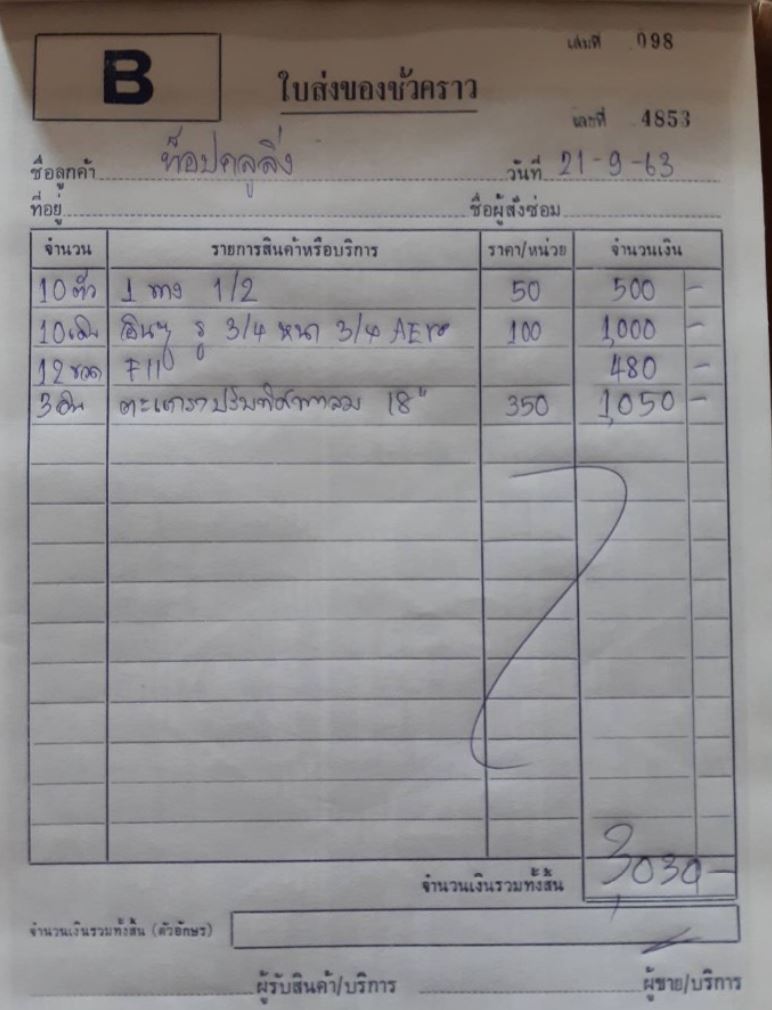 เล่มที่ 098
B
ใบส่งของชั่วคราว
เลขที่ 4853
ชื่อลูกค้า ท็อปคลูลิ่ง วันที่ 21-9-63
ที่อยู่ ชื่อผู้สั่งซ่อม
จำนวน รายการสินค้าหรือบริการ ราคา/หน่วย จำนวนเงิน
10 ตัว 1 ทาง 1/2 50 500 -
10 เส้น อินซู รู 3/4 หนา 3/4 AEro 100 1,000 -
12 ขวด F11 480 -
3 อัน ตะแกรงปรับทิศทางลม 18" 350 1,050 -
จำนวนเงินรวมทั้งสิ้น 3,030 -
จำนวนเงินรวมทั้งสิ้น (ตัวอักษร)
ผู้รับสินค้า/บริการ ผู้ขาย/บริการ